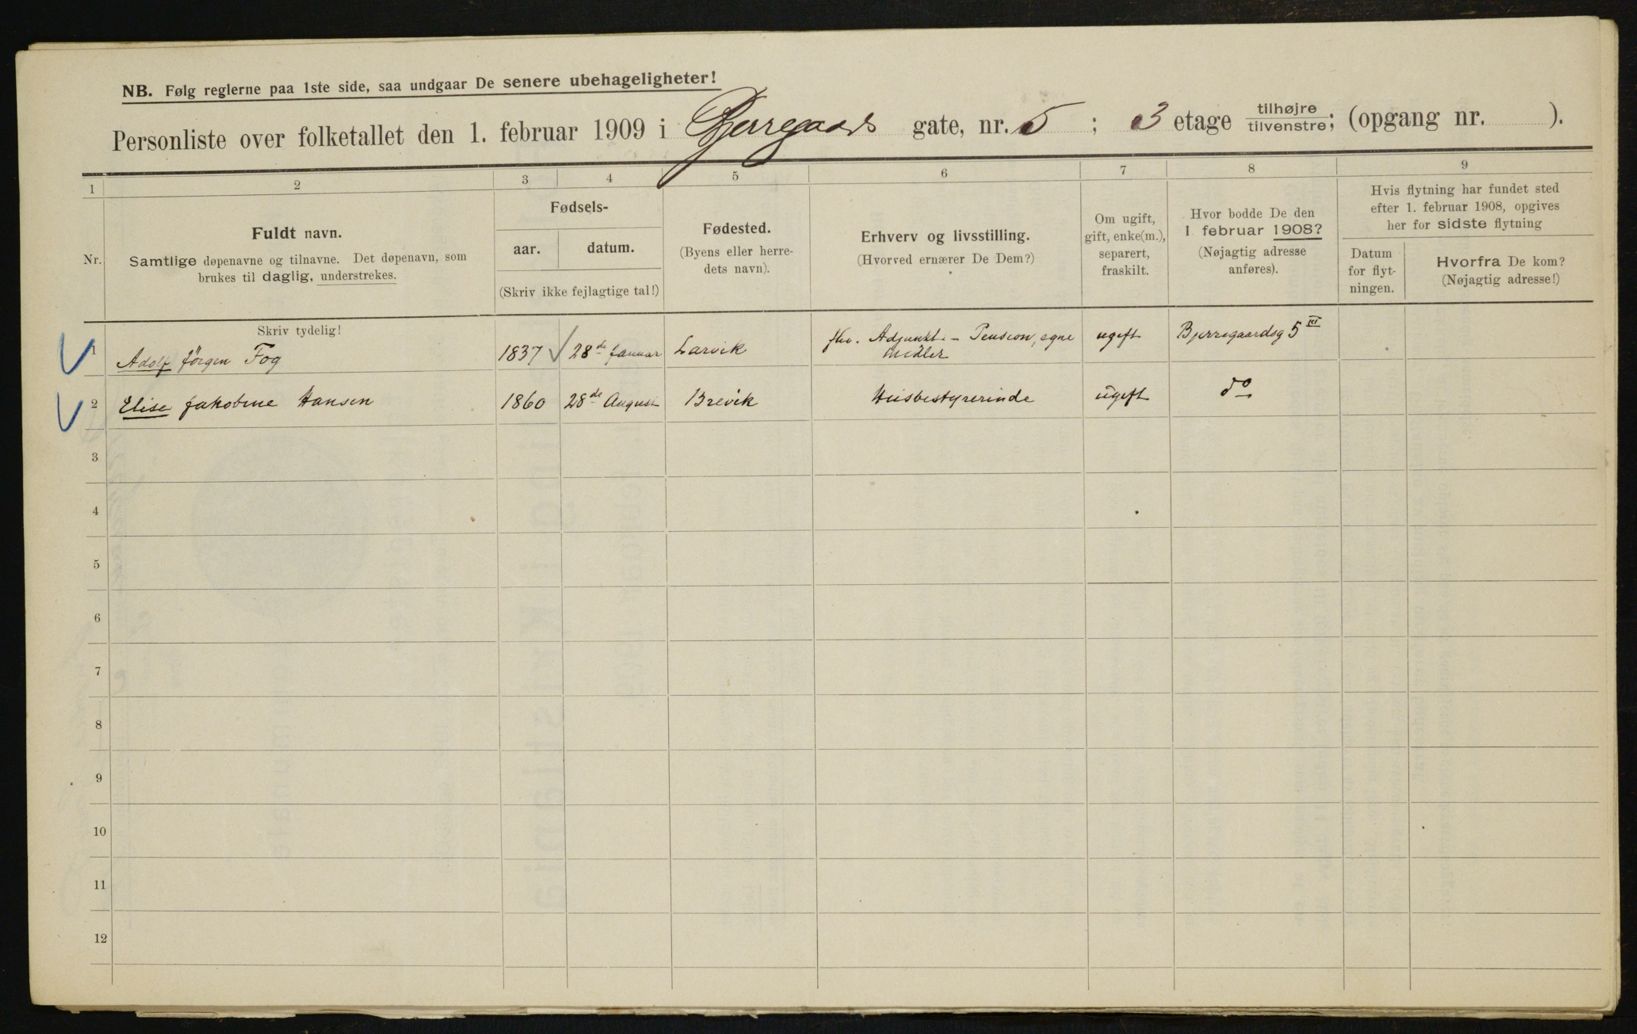 NB. Følg reglerne paa 1ste side, saa undgaar De senere ubehageligheter!
Personliste over folketallet den 1. februar 1909 i Bjerregaards gate, nr. 5 ; 3 etage tilhøjre tilvenstre; (opgang nr. ).
1 2 3 4 5 6 7 8 9
Nr.
Fuldt navn.
Samtlige døpenavne og tilnavne. Det døpenavn, som
brukes til daglig, understrekes.
Skriv tydelig!
Fødsels-
aar. datum.
(Skriv ikke fejlagtige tal!)
Fødested.
(Byens eller herre-
dets navn).
Erhverv og livsstilling.
(Hvorved ernærer De Dem?)
Om ugift,
gift, enke(m.),
separert,
fraskilt.
Hvor bodde De den
1 februar 1908?
(Nøjagtig adresse
anføres).
Hvis flytning har fundet sted
efter 1. februar 1908, opgives
her for sidste flytning
Datum
for flyt-
ningen.
Hvorfra De kom?
(Nøjagtig adresse!)
1 Adolf Jörgen Fog 1837 28de Januar Larvik fhv. Adjunkt. – Pension, egne Midler ugift Bjerregaardsg 5 III
2 Elise Jakobine Hansen 1860 28de August Brevik Husbestyrerinde ugift do
3
4
5
6
7
8
9
10
11
12